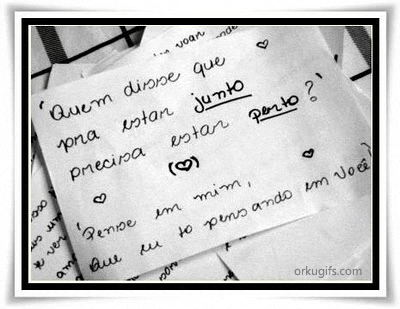 'Quem disse que
pra estar junto
precisa estar perto?'
'Pense em mim,
que eu tô pensando em você'
orkugifs.com